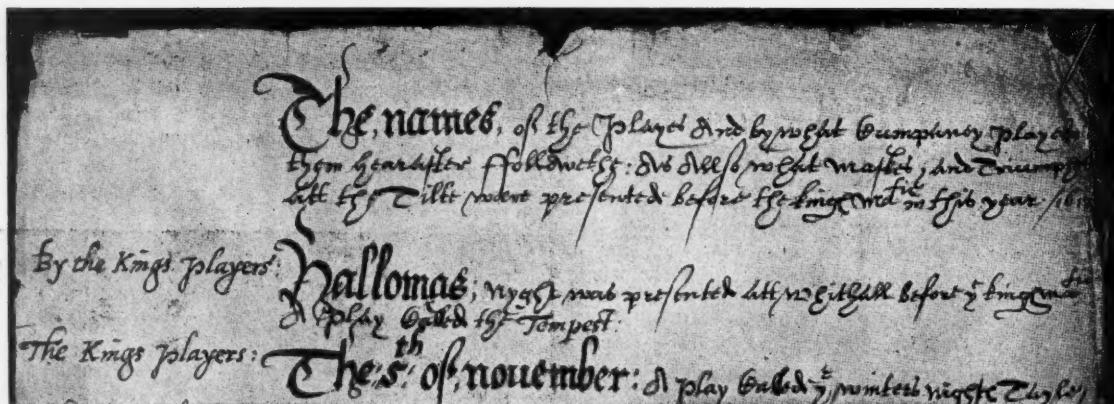 The, names, of the Playes And by what Cumpaney played
them hearafter ffollowethe: As Allso what Maskes, and Triumphes
att the Tilte were presented before the kinges matie in this year
By the Kings Players:
Hallomas, nyght was presented att Whithall before ye kinges matie
A play Called the Tempest:
The Kings Players:
The:5th: of, nouember: A play Called ye winters nightes Tayle,